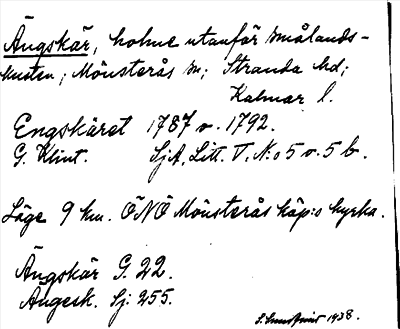 Ängskär, holme utanför Smålands-
kusten; Mönsterås sn; Stranda hd;
Kalmar l.
Engskäret 1787 o. 1792.
G. Klint. SjA, Litt. V. N:o 5 o. 5 b.
Läge 9 km. ÖNÖ Mönsterås köp:s kyrka.
Ängskär G. 22.
Ängesk. Sj: 255.
1938.